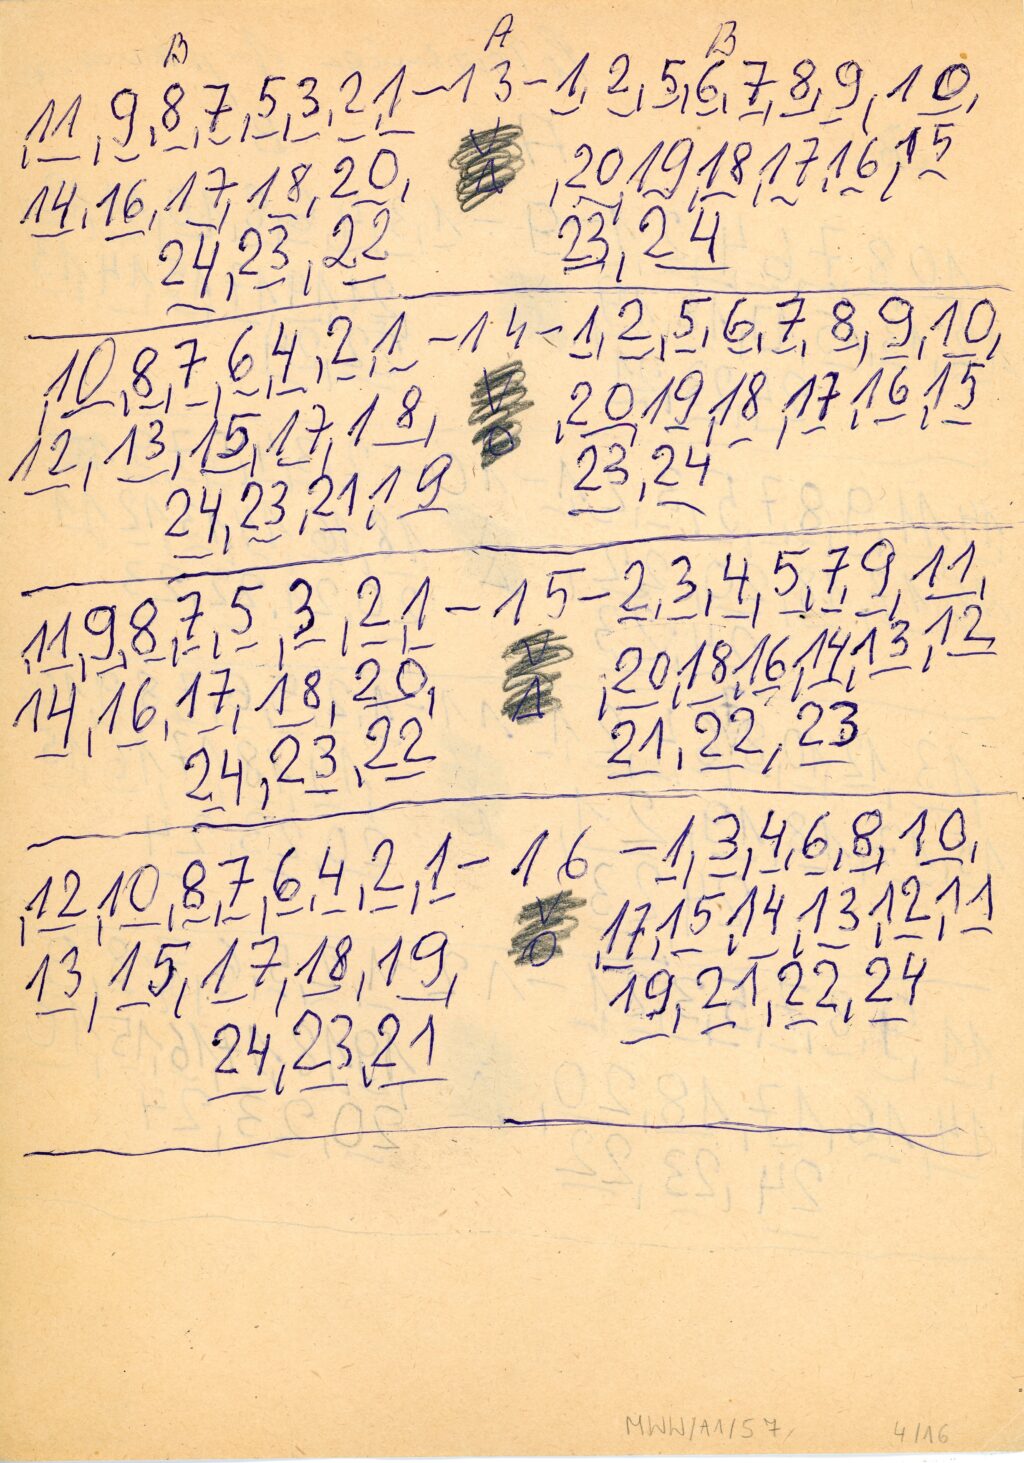 B A B
11, 9, 8, 7, 5, 3, 2, 1 - 13 - 1, 2, 5, 6, 7, 8, 9, 10,
14, 16, 17, 18, 20, V ,20, 19, 18, 17, 16, 15
1
24, 23, 22 23, 24
,10, 8, 7, 6, 4, 2, 1 - 14 - 1, 2, 5, 6, 7, 8, 9, 10,
12, 13, 15, 17, 18, V ,20, 19, 18, 17, 16, 15
0
24, 23, 21, 19 23, 24
,11, 9, 8, 7, 5, 3, 2, 1 - 15 - 2, 3, 4, 5, 7, 9, 11,
14, 16, 17, 18, 20, V ,20, 18, 16, 14, 13, 12
1
24, 23, 22 21, 22, 23
,12, 10, 8, 7, 6, 4, 2, 1 - 16 - 1, 3, 4, 6, 8, 10,
13, 15, 17, 18, 19, V ,17, 15, 14, 13, 12, 11
0
24, 23, 21 19, 21, 22, 24
MWW/A1/57 4/16